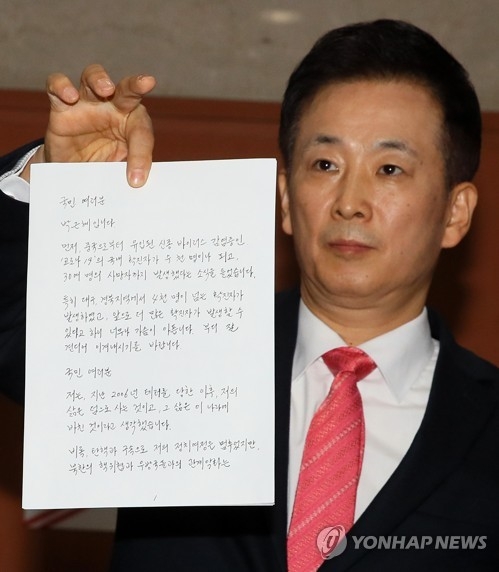 국민 여러분
박근혜입니다
먼저, 중국으로부터 유입된 신종 바이러스 감염증인
'코로나 19'의 국내 확진자가 수 천 명이나 되고,
30여 명의 사망자까지 발생했다는 소식을 들었습니다.
특히 대구 경북지역에서 4천 명이 넘는 확진자가
발생하였고, 앞으로 더 많은 확진자가 발생할 수
있다고 하니 너무나 가슴이 아픕니다. 부디 잘
견디어 이겨내시기를 바랍니다.
국민 여러분
저는, 지난 2006년 테러를 당한 이후, 저의
삶은 덤으로 사는 것이고, 그 삶은 이 나라에
바친 것이라고 생각했습니다.
비록, 탄핵과 구속으로 저의 정치여정은 멈추었지만,
북한의 핵위협과 우방국들과의 관계악화는
1
YONHAP NEWS